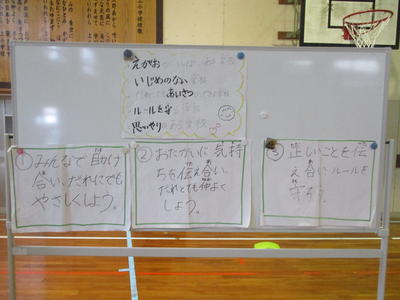 えがおがいっぱいある学校
いじめのない学校
あいさつ
ルールを守る学校
思いやりのある学校
①みんなで助け
合い、だれにでも
やさしくしよう。
②おたがいに気持
ちを伝え合い、
だれとでも仲よく
しよう。
③正しいことを伝
え合いルールを
守ろう。